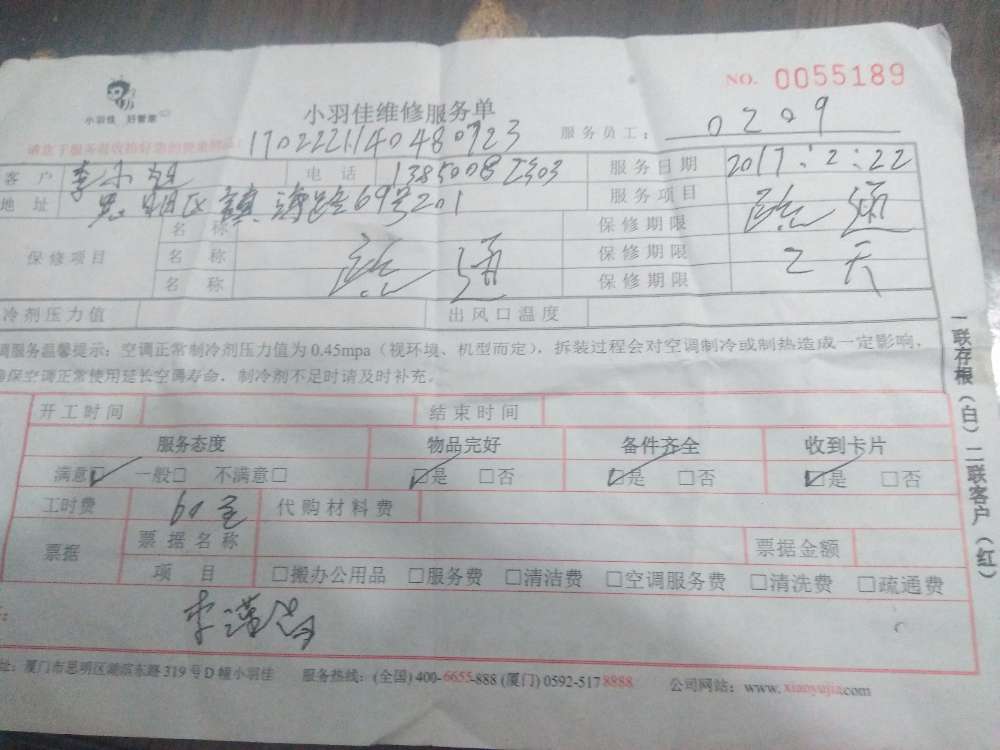 NO. 0055189
小羽佳 好管家
小羽佳维修服务单
服务员工: 0209
1702221140480723
客户 电话 服务日期 2017:2:22
地址 思明区镇海路69号201 服务项目 疏通
保修项目 名称 保修期限
名称 疏通 保修期限 2天
名称 保修期限
冷剂压力值 出风口温度
调服务温馨提示: 空调正常制冷剂压力值为 0.45mpa (视环境、机型而定), 拆装过程会对空调制冷或制热造成一定影响,
确保空调正常使用延长空调寿命, 制冷剂不足时请及时补充。
开工时间 结束时间
服务态度 物品完好 备件齐全 收到卡片
满意□ 一般□ 不满意□ □是 □否 □是 □否 □是 □否
工时费 60元 代购材料费
票据 票据名称 票据金额
项目 □搬办公用品 □服务费 □清洁费 □空调服务费 □清洗费 □疏通费
址: 厦门市思明区湖滨东路 319 号 D 幢小羽佳 服务热线: (全国) 400-6655-888 (厦门) 0592-517 8888 公司网站: www. xiaoyujia.com
一联存根(白) 二联客户(红)